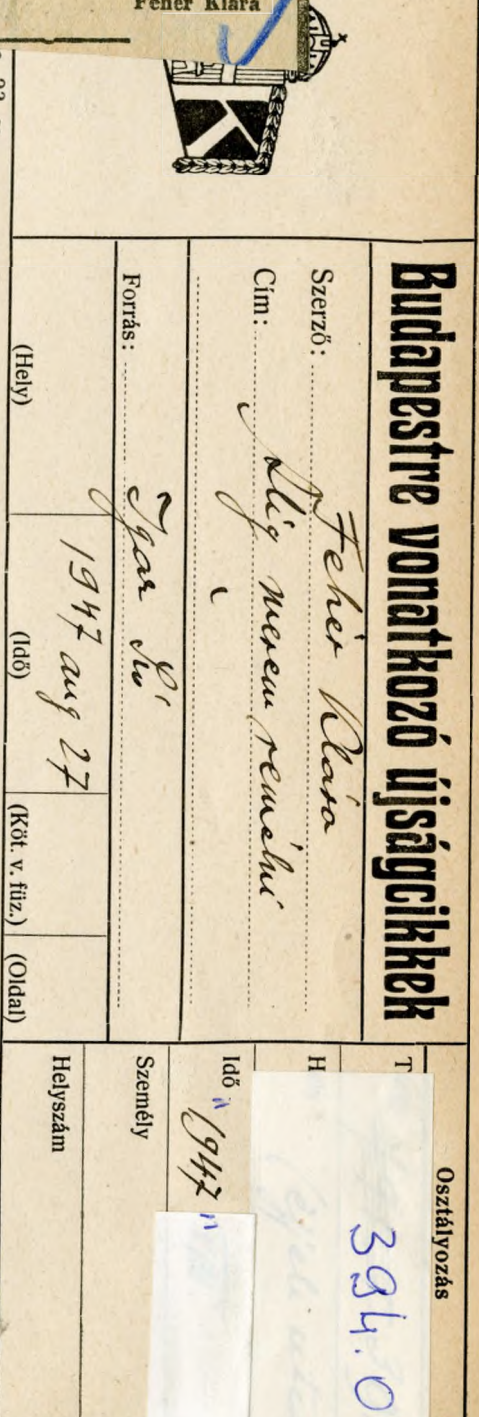 Fehér Klára
Budapestre vonatkozó újságcikkek
Szerző: Fehér Klára
Cím: Alig merem remélni
Forrás: Igaz Szó
(Hely)
1947 aug 27
(Idő)
(Köt. v. füz.)
(Oldal)
Osztályozás
T
394.0
H
Idő "1947"
Személy
Helyszám